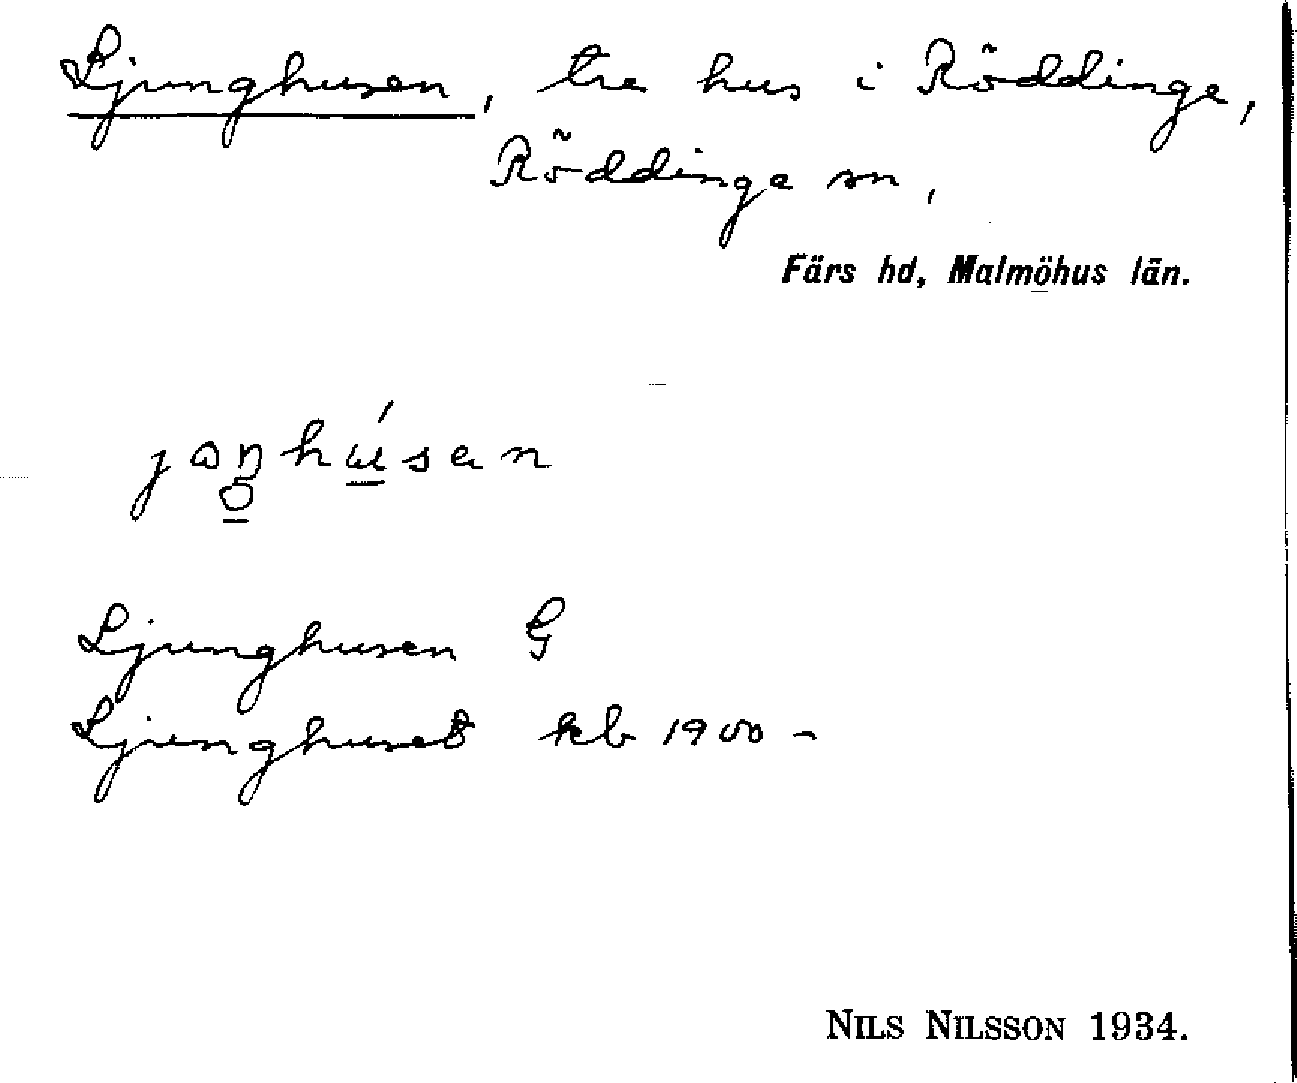 Ljunghusen, tre hus i Röddinge,
Röddinge sn,
Färs hd, Malmöhus län.
Ljunghusen G
Ljunghuset kb 1900 -
NILS NILSSON 1934.